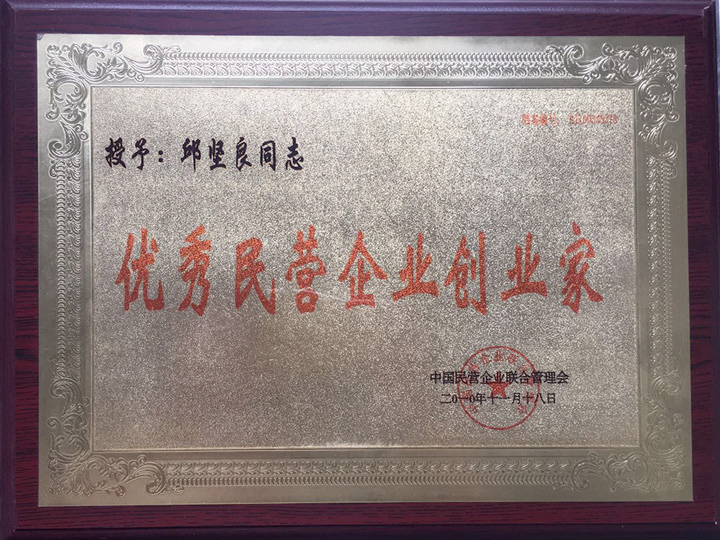 授予：邱坚良同志
优秀民营企业创业家
中国民营企业联合管理会
二0一0年十一月十八日